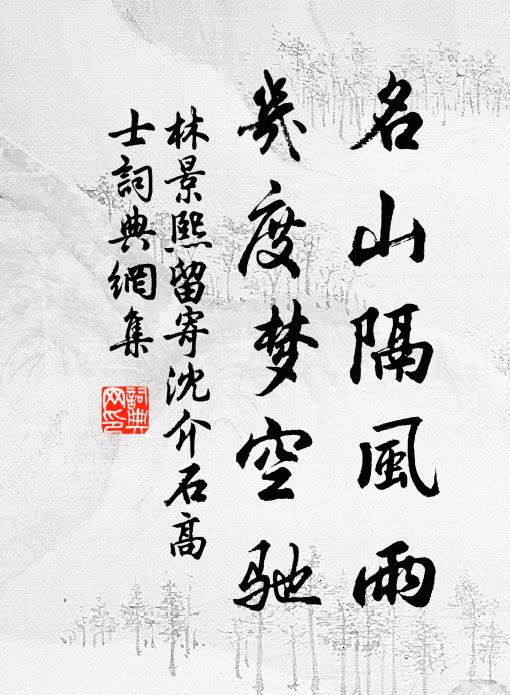 名山隔風雨
幾度梦空馳
林景熙留寄沈介石高
士詞典網集
詞典
网印